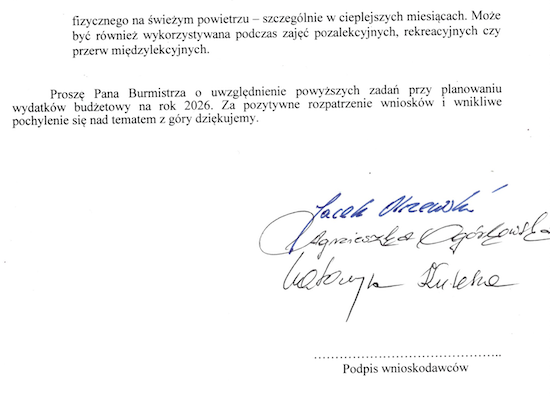 fizycznego na świeżym powietrzu – szczególnie w cieplejszych miesiącach. Może
być również wykorzystywana podczas zajęć pozalekcyjnych, rekreacyjnych czy
przerw międzylekcyjnych.
Proszę Pana Burmistrza o uwzględnienie powyższych zadań przy planowaniu
wydatków budżetowy na rok 2026. Za pozytywne rozpatrzenie wniosków i wnikliwe
pochylenie się nad tematem z góry dziękujemy.
Jacek
Agnieszka
Katarzyna
……………………………………………..
Podpis wnioskodawców